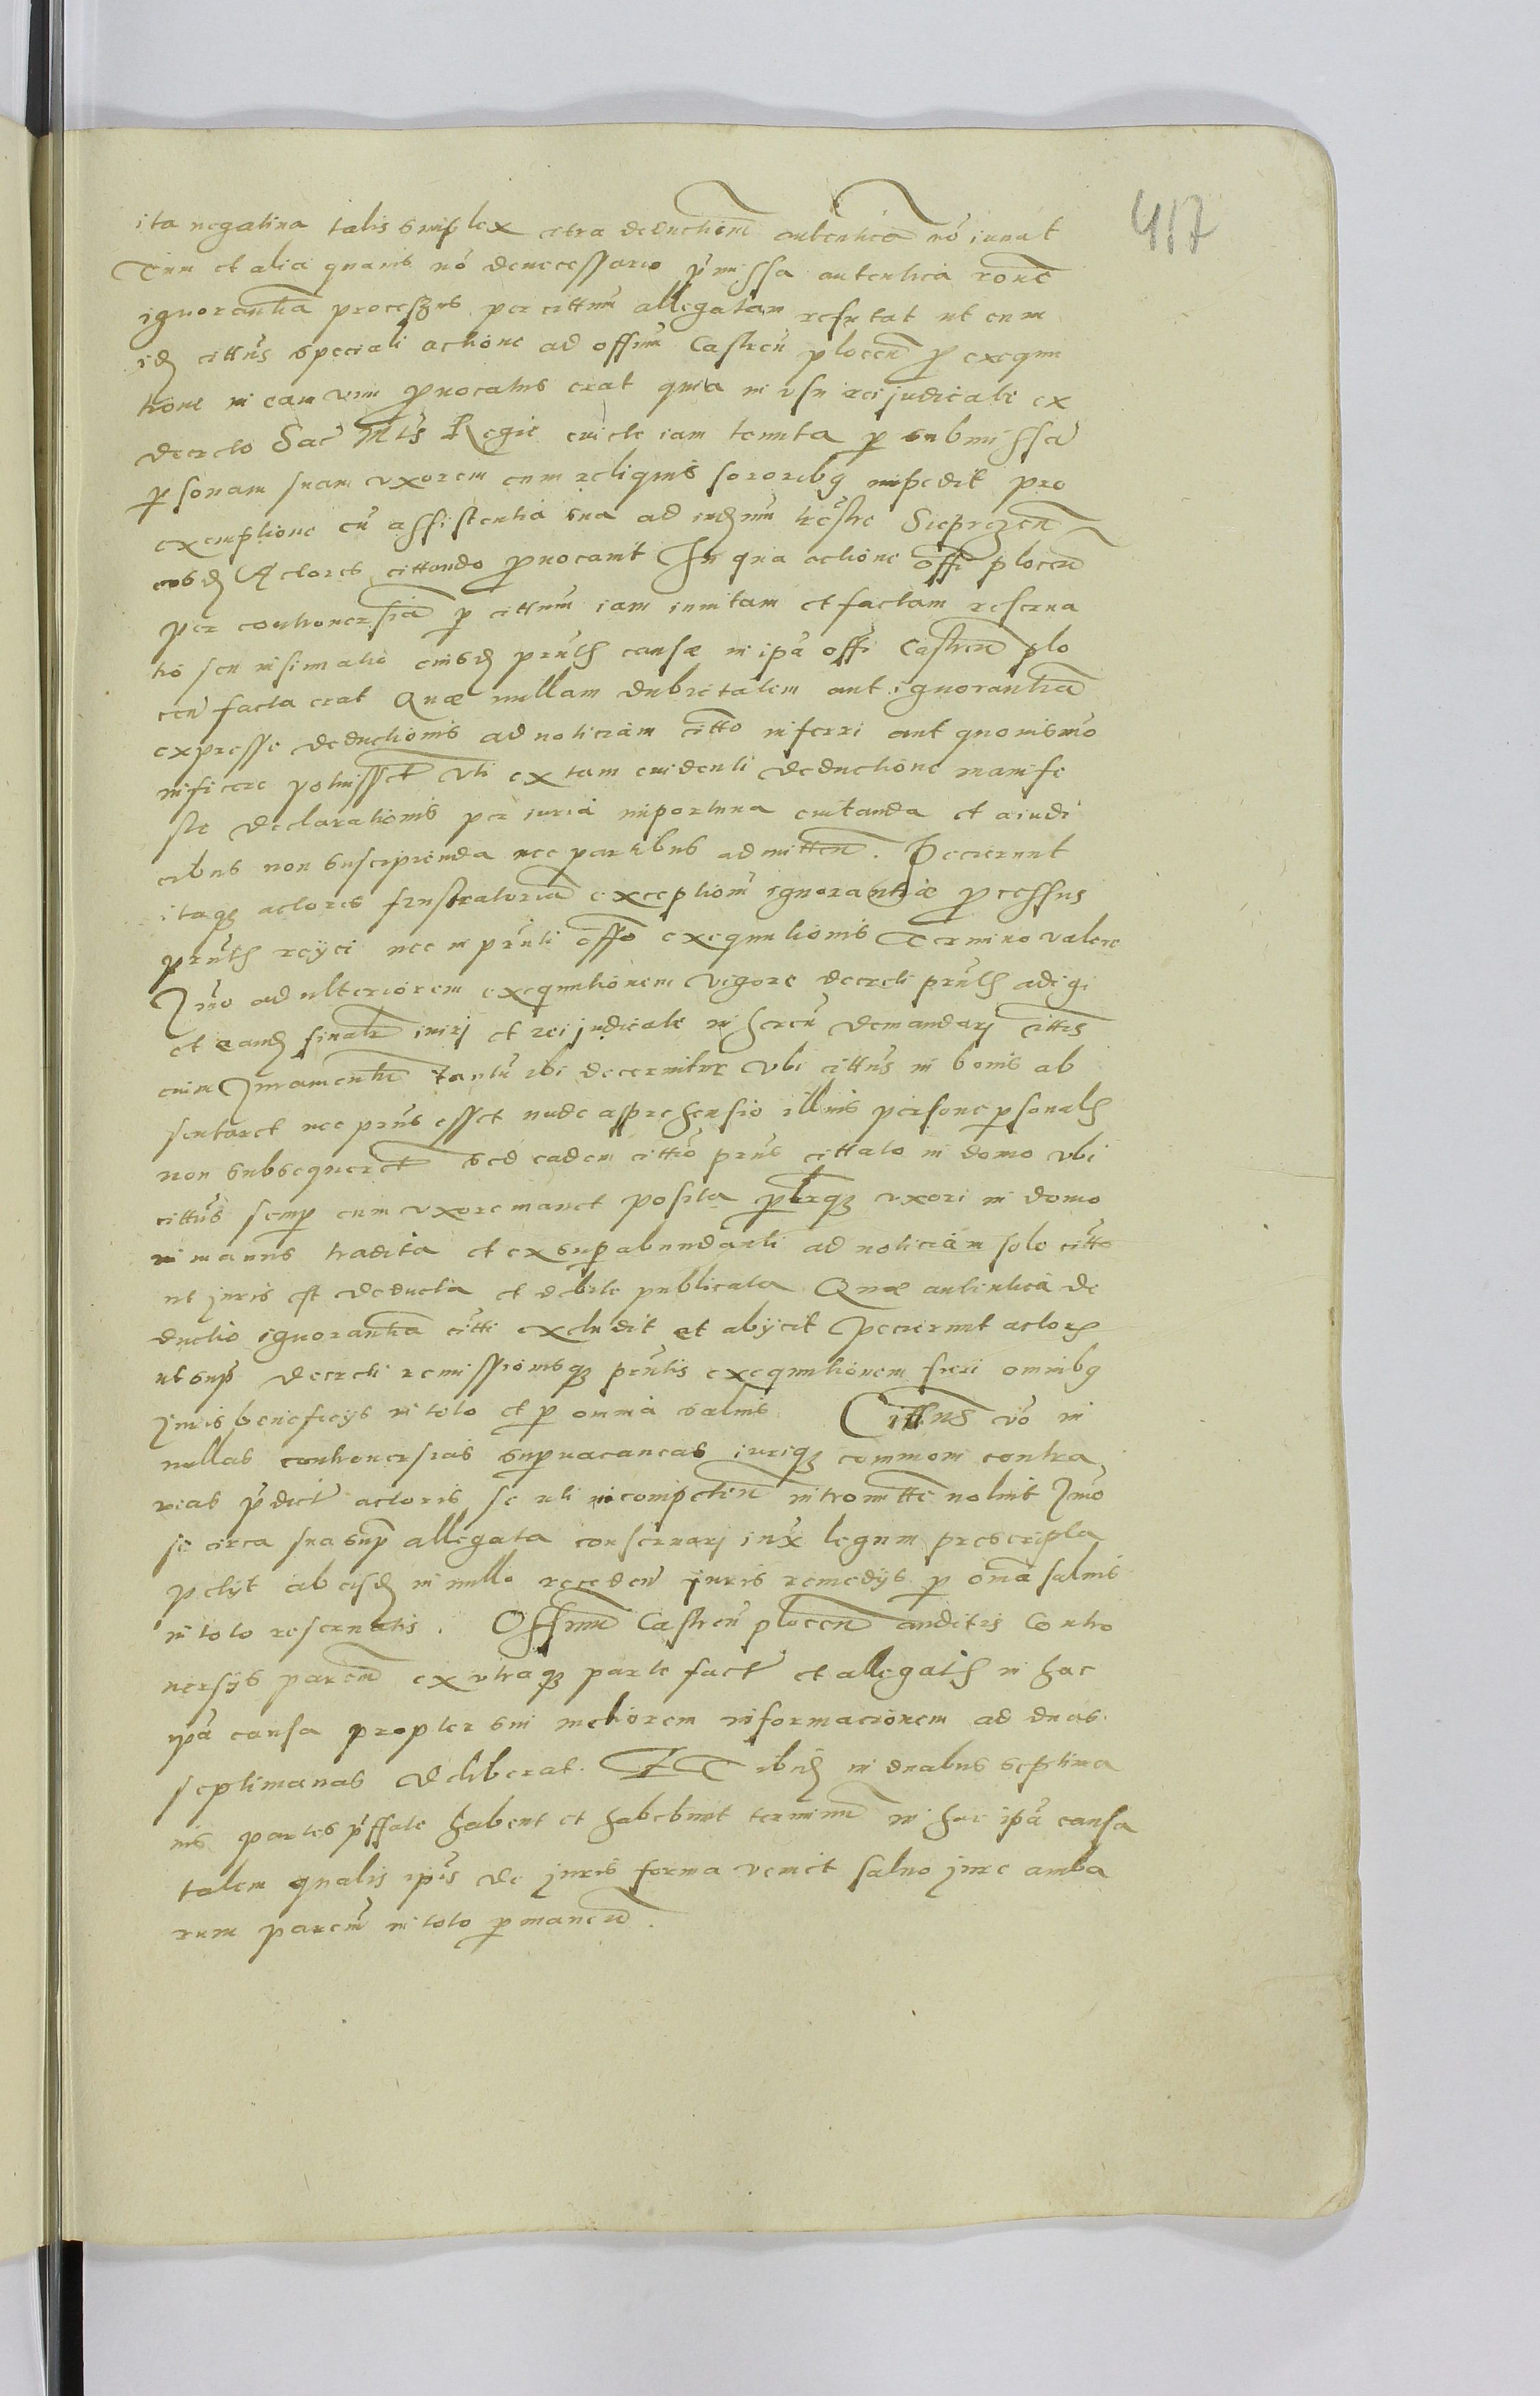 417
ita negatiua talis simplex citra deductionē autenticā nō iuuat
Tum et alia quauis nō de necessario p̄missa autentica rōne
ignorantia processus per cittum̄ allegatam refutat ut cum
idē cittūs speciali actione ad offīm Castreñ plocen̄ p̱ exequu
tione in eam vim p̱uocatus erat quia in usu rei judicate ex
decreto Sac̄ Mtis Regie euicte iam tenuta p̱ submissā
p̱sonam suam uxorem cum reliquis sororibꝫ impedit pro
exemptione cū assistentia sua ad iudiciū trēstre Sieprcen̄
eosdē Actores cittando p̱uocauit In qua actione offi plocen̄
per controuersiā p̱ cittum̄ iam inuitam et factam reserua
tio seu insinuatio eiusdē prn̄tis causæ in ipā offi Castren̄ plo
cen̄ facta erat Quæ nullam dubietatem aut ignorantiā
expresse deductionis ad noticiam citto inferri aut quouismō
inficere potuisset Uti ex tam euidenti deductione manife
ste declarationis periuria importuna euitanda et a iudi
cibus non suscipienda nec partibus admitten̄. Pecierunt
itaqꝫ actores frustratoriā exceptionē ignorantiæ p̱cessus
prn̄tis reÿci nec in prn̄ti offo exequutionis Termino valere
Imō ad ulteriorem exequutionem vigore decreti prn̄tis adigi
et eandē finalē inirj et rei judicate inhereñ demandarj cittis
enim Juramentū tantū ibi decernitur Ubi cittūs in bonis ab
sentaret nec prius esset nude apprehensio illius persone p̱sonalis
non subsequeret sed eadem cittio prius cittato in domo ubi
cittūs semp̱ cum uxore manet posita p̱terqꝫ uxori in domo
in manus tradita et ex sup̱abundanti ad noticiam solo citto
ut juris est deducta et debite publicata Quæ autentica de
ductio ignorantiā citti excludit et abÿcit Pecierunt actores
ut sup̱ decreti remissionisqꝫ prn̄tis exequutionem fieri omnibꝫ
Juris beneficÿs in toto et p̱ omnia saluis. Cittus vō in
nullas controuersias sup̱uacaneas iuriqꝫ communi contra
rias p̄dict actoris se uti incompeten̄ intromitte noluit Imō
se circa sua sup̱ allegata conseruarj iux̄ legum prescripta
petÿt ab eisdē in nullo receden̄ juris remedÿs p̱ om̄ia saluis
in toto reseruatis. Offm̄ Castreñ plocen̄ auditis Contro
uersÿs parcm̄ ex utraqꝫ parte fact et allegatis in hac
ipā causa propter sui meliorem informacionem ad duas
septimanas deliberat. ET ibidē in duabus septima
nis partes p̄ffate habent et habebunt terminū in hac ipā causa
talem qualis ipīs de juris forma venit saluo jure amba
rum parcm̄ in toto p̱maneñ.